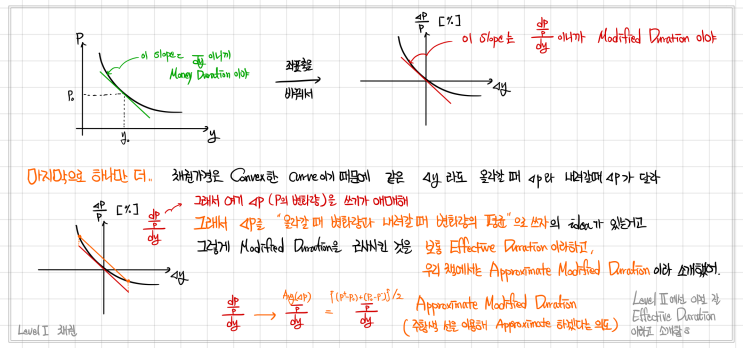 P
P₀
y₀
y
이 slope는 dP/dy 이니까
Money Duration 이야
좌표축을
바꿔서
ΔP/P [%]
Δy
이 slope는 dP/P/dy 이니까 Modified Duration 이야
마지막으로 하나만 더.. 채권가격은 Convex한 curve이기 때문에 같은 Δy 라도 올라갈 때 ΔP랑 내려갈때 ΔP가 달라
그래서 여기 ΔP (P의 변화량)을 쓰기가 애매해
ΔP/P [%]
dP/P/dy
Δy
그래서 ΔP를 "올라갈 때 변화량과 내려갈 때 변화량의 평균" 으로 쓰자의 idea가 있는거고
그렇게 Modified Duration을 근사시킨 것을 보통 Effective Duration 이라하고,
우리 책에서는 Approximate Modified Duration 이라 소개했어.
dP/P/dy → Avg(ΔP)/P/dy = [(P⁺-P₀)+(P₀-P⁻)]/2/P/dy
Approximate Modified Duration
(주황색 선을 이용해 Approximate 하겠다는 의도)
Level II 에선 이런 걸
Effective Duration
이라고 소개함
Level I 채권